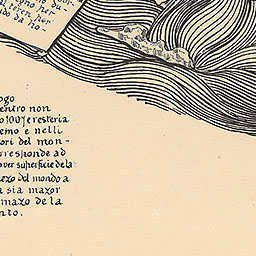 ogno her
al teren per
do da no-
ogo
entro non
o 1007 e resteria
emo e nelli
ori del mon-
rresponde ad
over superficie de la
nezo del mondo a
a sia mazor
mazo de la
nto.